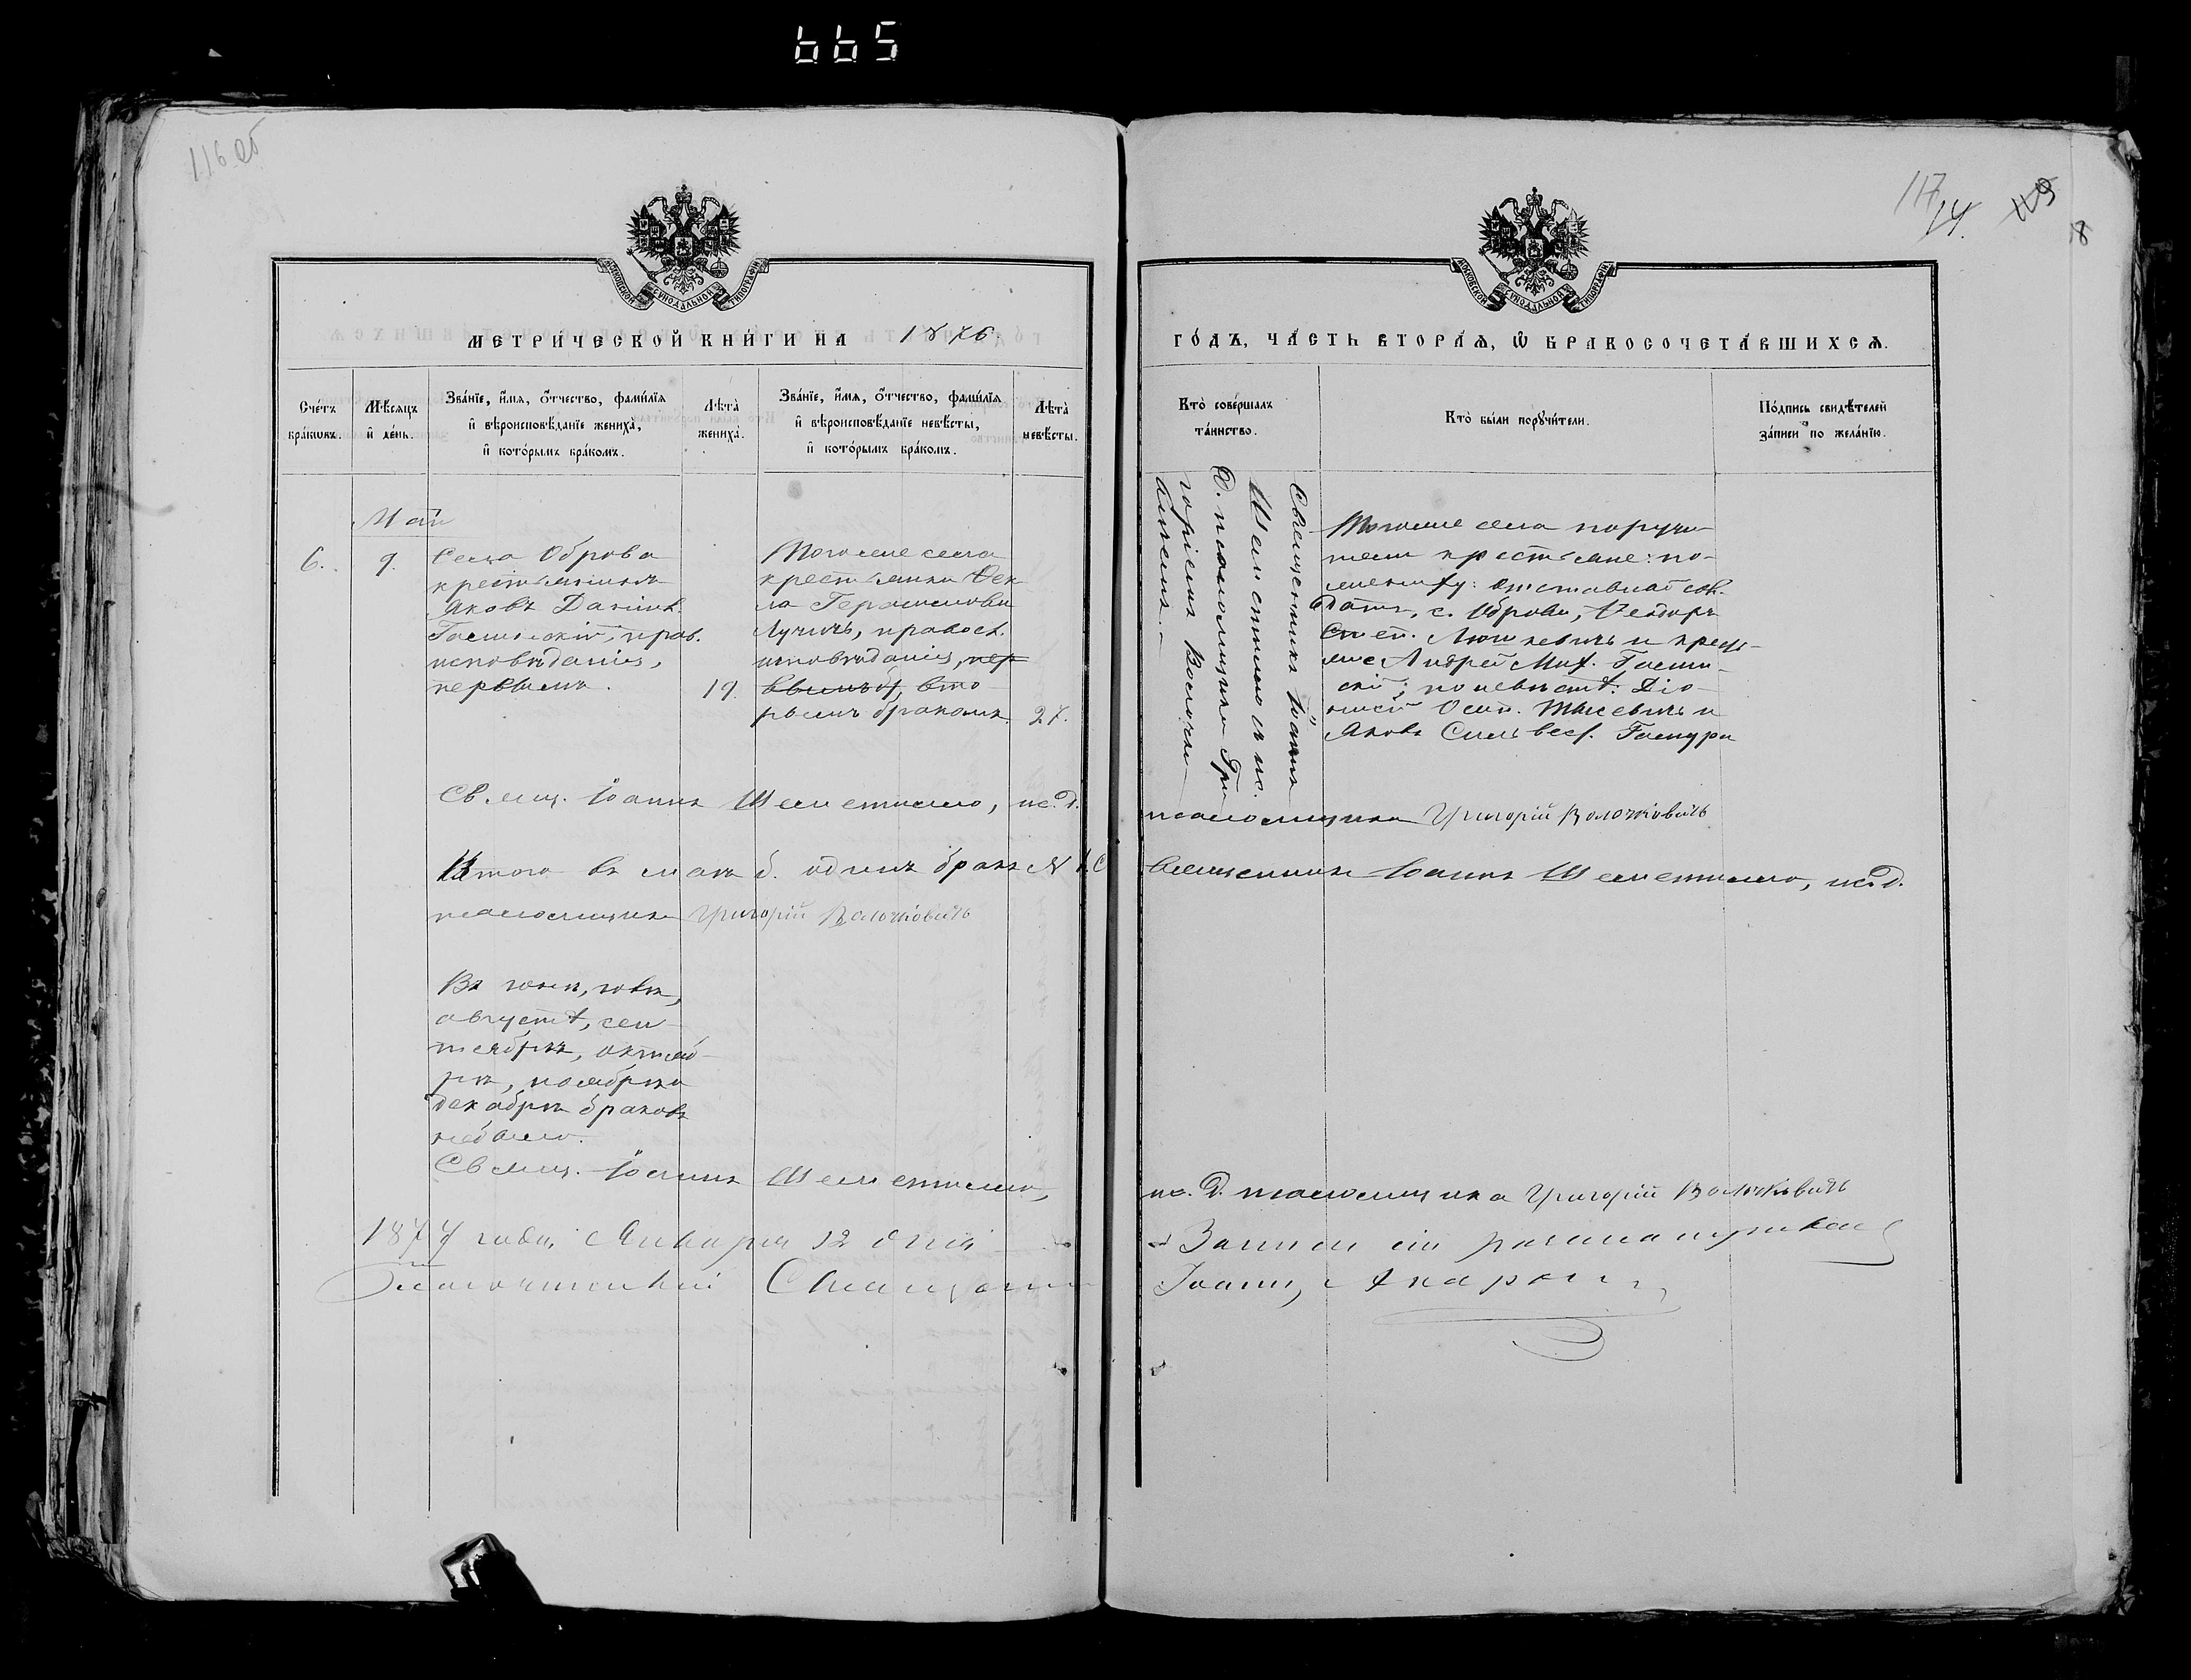 665
116 об
117
14.
113
18
МОСКОВСКОЙ СУНОДАЛЬНОЙ ТИПОГРАФІИ
МОСКОВСКОЙ СУНОДАЛЬНОЙ ТИПОГРАФІИ
МЕТРИ́ЧЕСКОЙ КНИ́ГИ НА 1876.
ГО́ДЪ, ЧА́СТЬ ВТОРА́Ѧ, Ѡ҆ БРАКОСОЧЕТА́ВШИХСѦ.
Сче́тъ бра́кѡвъ.
Мѣ́сѧцъ и҆ де́нь.
Зва́нїе, и҆́мѧ, о҆́тчество, фами́лїѧ
и҆ вѣроисповѣ́данїе жениха̀,
и҆ кото́рымъ бра́комъ.
Лѣта̀ жениха̀.
Зва́нїе, и҆́мѧ, о҆́тчество, фами́лїѧ
и҆ вѣроисповѣ́данїе невѣ́сты,
и҆ кото́рымъ бра́комъ.
Лѣта̀ невѣ́сты.
Кто̀ соверша́лъ та́инство.
Кто̀ бы́ли порꙋчи́тели.
По́дпись свидѣ́телей за́писи по жела́нїю.
Май
6.
9.
Села Оброва
крестьянинъ
Яковъ Даніил.
прав.
исповѣданія,
первымъ.
19.
Того же села
крестьянка Фек
ла Герасимова
Лучичъ, правосл.
исповѣданія, пер
вымъ б, вто
рымъ бракомъ.
27.
Священникъ Іоаннъ
и ис.
д. псаломщика Гри
горій Волочко
вичъ.
Того же села поручи
тели крестьяне: по
жениху: отставной сол
датъ, с. Оброва, Феодоръ
Степ. и кресть
яне Андрей Мих.
скій; по невѣстѣ: Діо
нисій Осип. и
Яковъ Сильвест.
Свящ. Іоаннъ ис. д.
псаломщика Григорій Волочковичъ
Итого въ маѣ б. одинъ бракъ
Священникъ Іоаннъ ис. д.
псаломщика Григорій Волочковичъ
Въ іюнѣ, іюлѣ,
августѣ, сен
тябрѣ, октяб
рѣ, ноябрѣ и
декабрѣ браковъ
не было.
Свящ. Іоаннъ
ис. д. псаломщика Григорій Волочковичъ
1877 года, Января 12 дня
Записи сіи разсматривалъ
Благочинный Священникъ
Іоаннъ